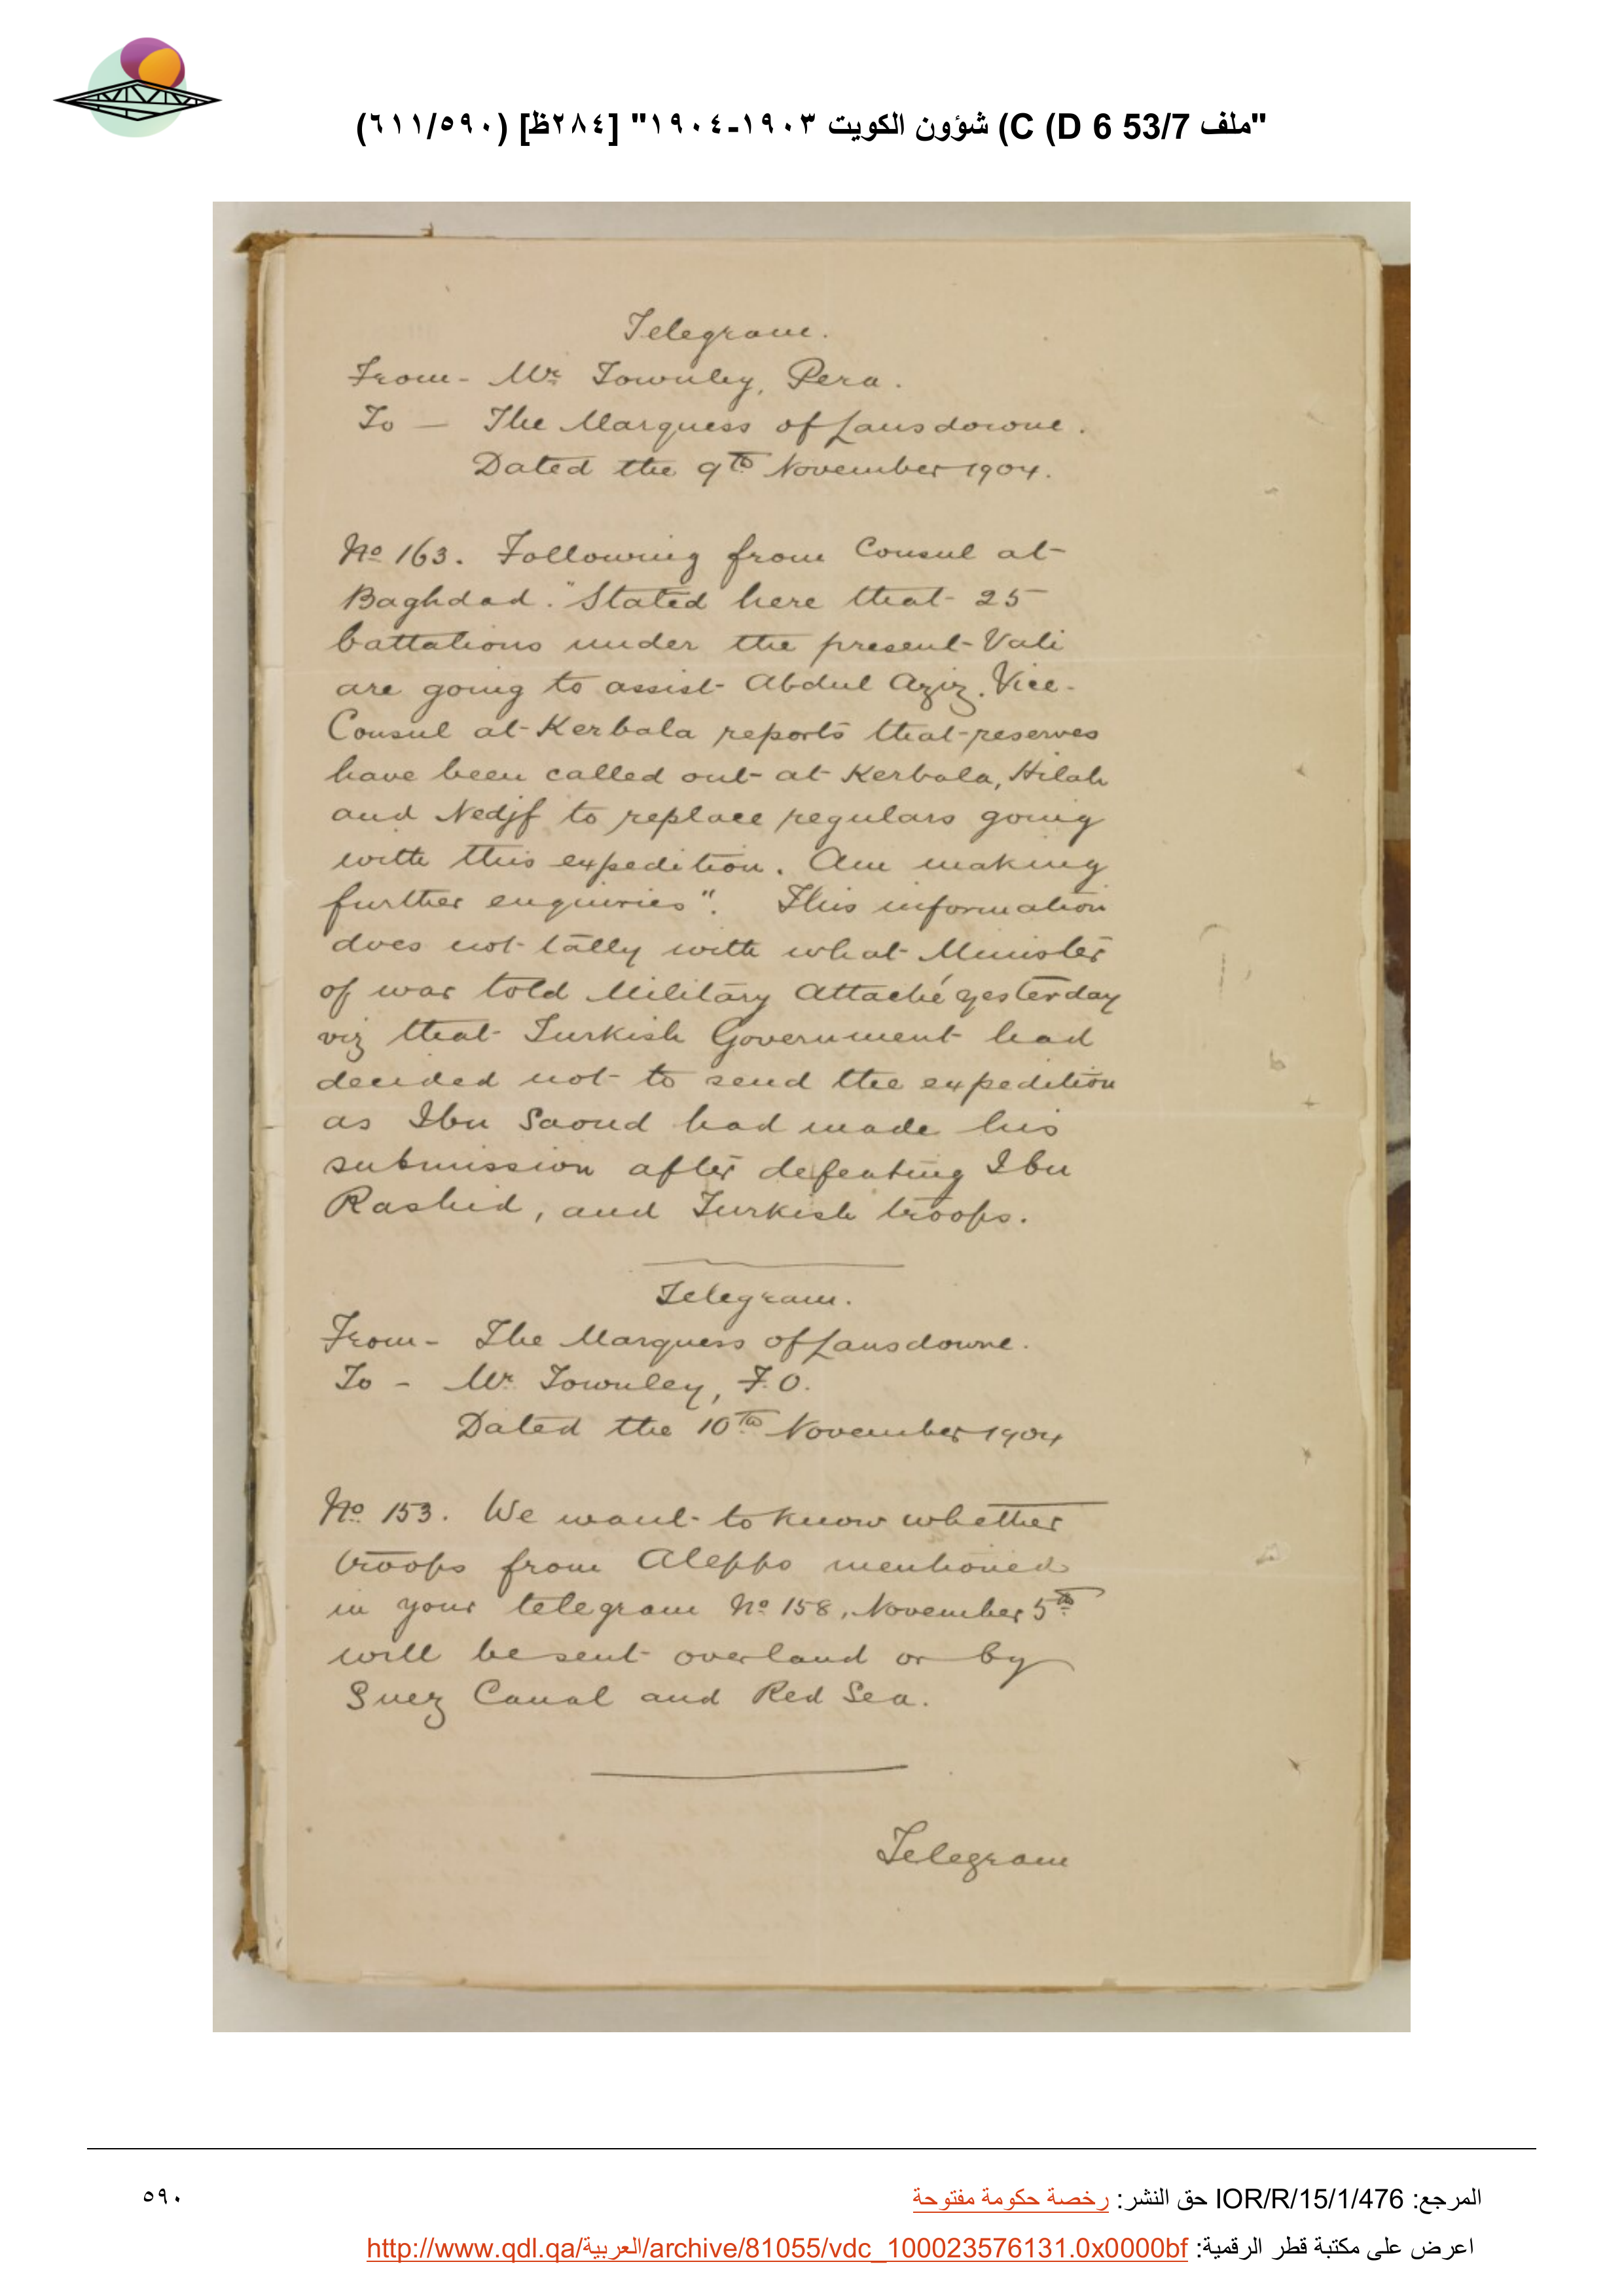 "ملف 53/7 D 6) C) شؤون الكويت ١٩٠٣-١٩٠٤" [٢٨٤ظ] (٦١١/٥٩٠)
Telegram.
From - Mr. Townley, Pera.
To - The Marquess of Lansdowne.
Dated the 9th November 1904.
No. 163. Following from Consul at
Baghdad. "Stated here that 25
battalions under the present Vali
are going to assist Abdul Aziz. Vice-
Consul at Kerbala reports that reserves
have been called out at Kerbala, Hilah
and Nedjf to replace regulars going
with this expedition. Am making
further enquiries". This information
does not tally with what Minister
of war told Military Attaché yesterday
viz that Turkish Government had
decided not to send the expedition
as Ibn Saoud had made his
submission after defeating Ibn
Rashid, and Turkish troops.
Telegram.
From - The Marquess of Lansdowne.
To - Mr. Townley, F.O.
Dated the 10th November 1904
No. 153. We want to know whether
troops from Aleppo mentioned
in your telegram No. 158, November 5th
will be sent overland or by
Suez Canal and Red Sea.
Telegram
المرجع: IOR/R/15/1/476 حق النشر: رخصة حكومة مفتوحة
٥٩٠
اعرض على مكتبة قطر الرقمية: http://www.qdl.qa/العربية/archive/81055/vdc_100023576131.0x0000bf